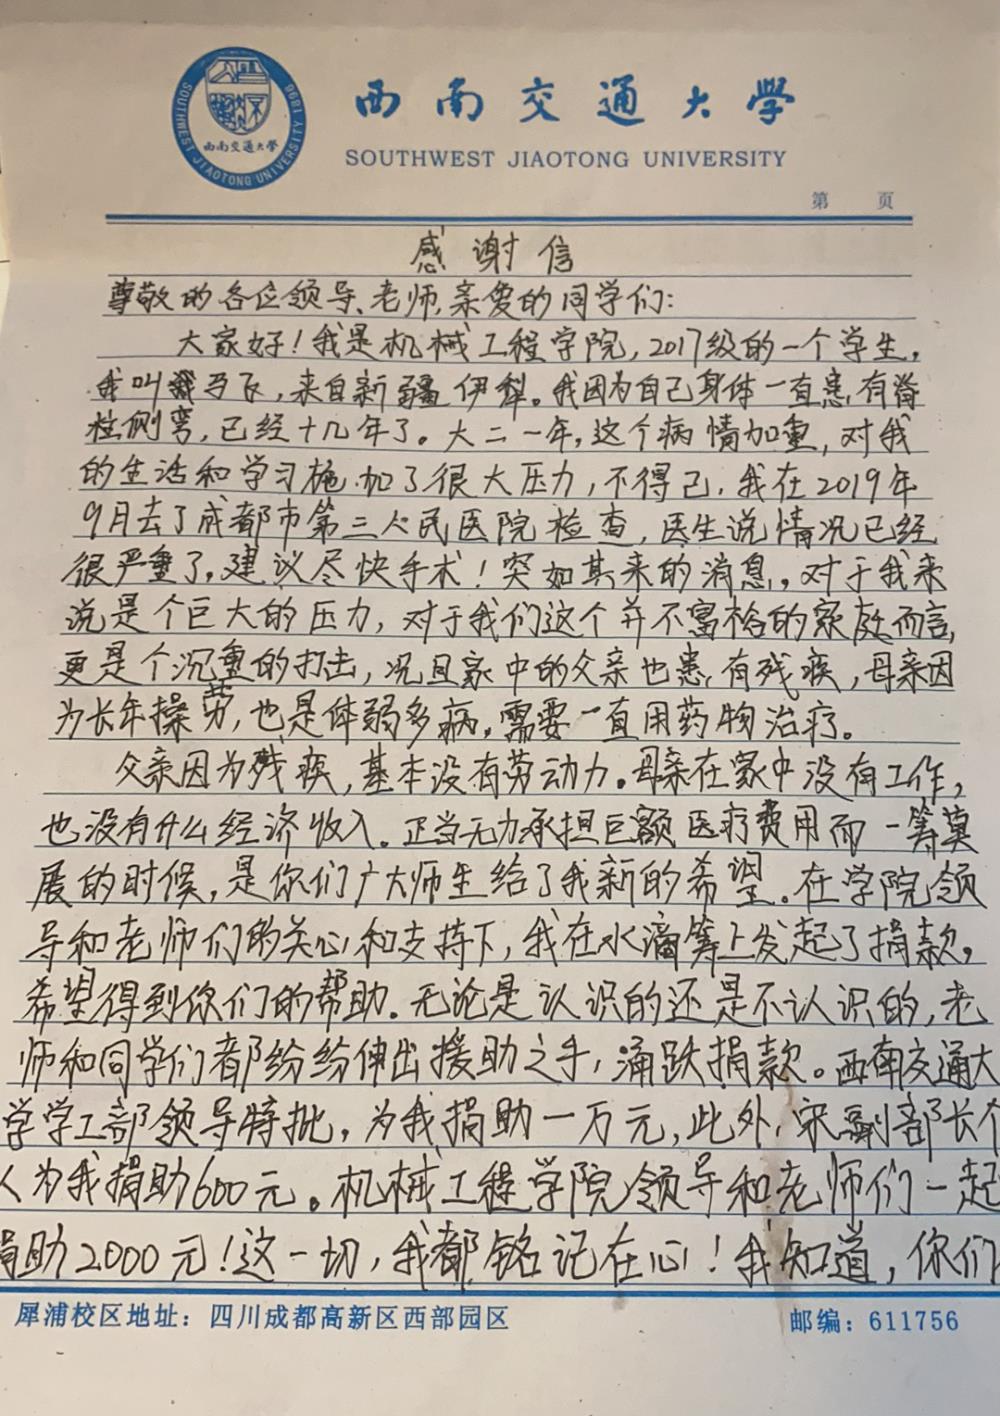 西南交通大学
SOUTHWEST JIAOTONG UNIVERSITY
SOUTHWEST JIAOTONG UNIVERSITY 1896
西南交通大学
第 页
感谢信
尊敬的各位领导、老师,亲爱的同学们:
大家好!我是机械工程学院,2017级的一个学生。
我叫马飞,来自新疆伊犁。我因为自己身体一直患有脊
柱侧弯,已经十几年了。大二一年,这个病情加重,对我
的生活和学习施加了很大压力,不得已,我在2019年
9月去了成都市第三人民医院检查,医生说情况已经
很严重了。建议尽快手术!突如其来的消息,对于我来
说是个巨大的压力,对于我们这个并不富裕的家庭而言,
更是个沉重的打击,况且家中的父亲也患有残疾,母亲因
为长年操劳,也是体弱多病,需要一直用药物治疗。
父亲因为残疾,基本没有劳动力。母亲在家中没有工作,
也没有什么经济收入。正当无力承担巨额医疗费用而一筹莫
展的时候,是你们广大师生给了我新的希望。在学院领
导和老师们的关心和支持下,我在水滴筹上发起了捐款,
希望得到你们的帮助。无论是认识的还是不认识的,老
师和同学们都纷纷伸出援助之手,涌跃捐款。西南交通大
学学工部领导特批,为我捐助一万元,此外,宋副部长个
人为我捐助600元。机械工程学院领导和老师们一起
捐助2000元!这一切,我都铭记在心!我知道,你们
犀浦校区地址:四川成都高新区西部园区
邮编:611756